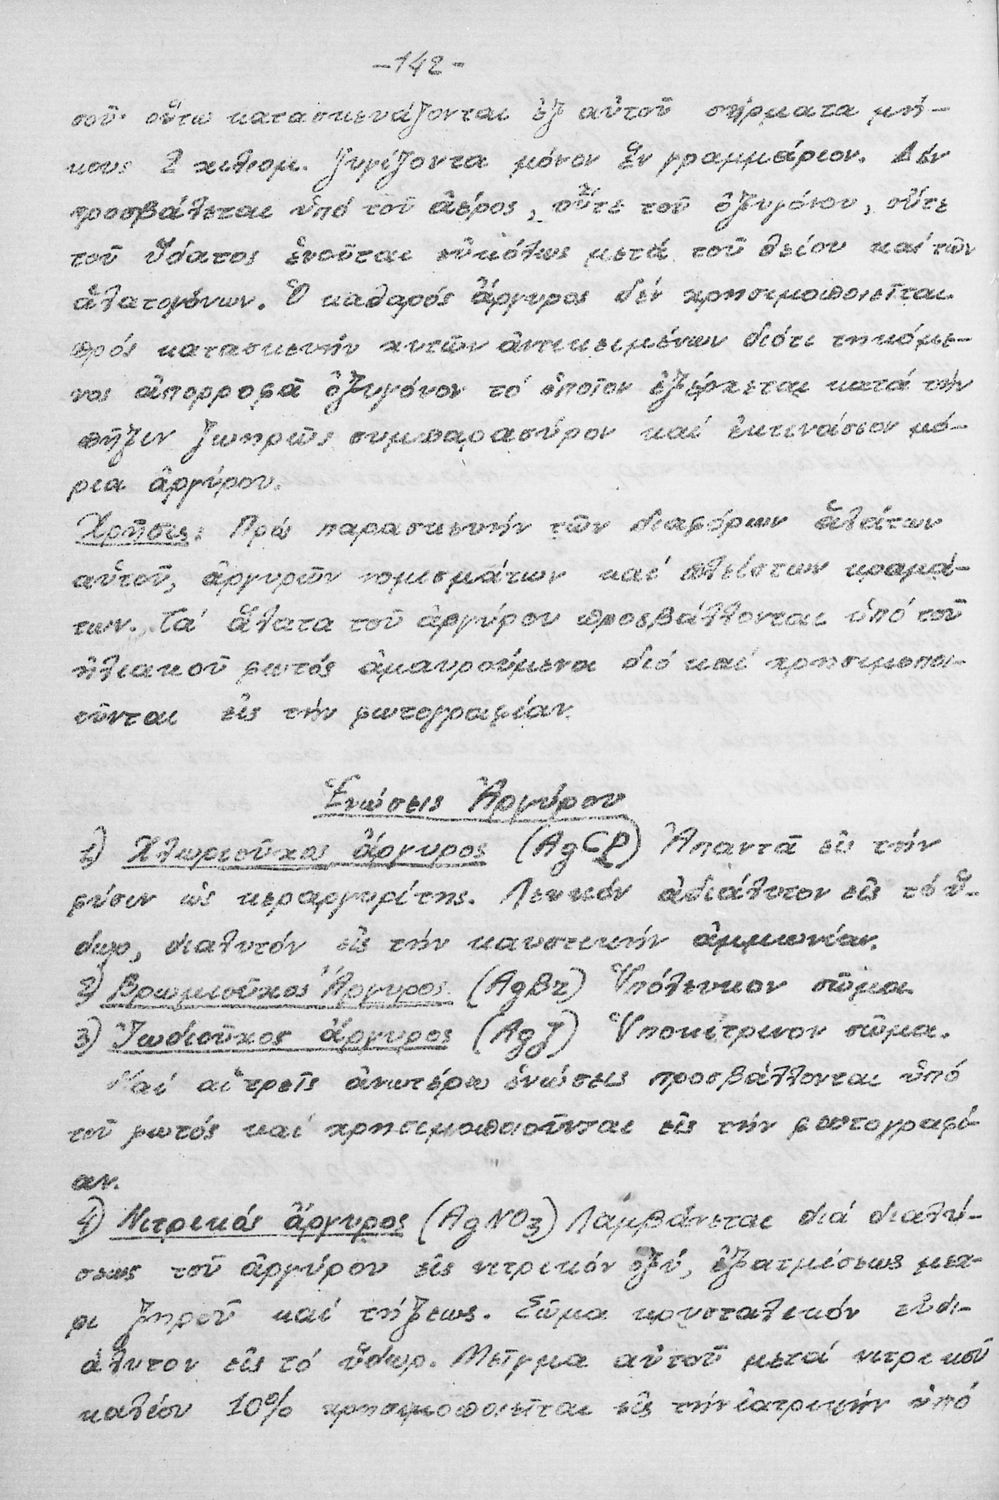 -142-
σοῦ· οὕτω κατασκευάζονται ἐξ αὐτοῦ σύρματα μή-
κους 2 χιλιομ. ζυγίζοντα μόνον ἕν γραμμάριον. Δέν
προσβάλεται ὑπό τοῦ ἀέρος, οὔτε τοῦ ὀξυγόνου, οὔτε
τοῦ ὕδατος ἑνοῦται εὐκόλως μετά τοῦ θείου καί τῶν
ἁλατογόνων. Ὁ καθαρός ἄργυρος δέν χρησιμοποιεῖται
πρός κατασκευήν χυτῶν ἀντικειμένων διότι τηκόμε-
νος ἀπορροφᾶ ὀξυγόνον τό ὁποῖον ἐξέρχεται κατά τήν
πῆξιν ζωηρῶς συμπαρασύρον καί ἐκτινάσσον μό-
ρια ἀργύρου.
Χρῆσις: Πρός παρασκευήν τῶν διαφόρων ἁλάτων
αὐτοῦ, ἀργυρῶν νομισμάτων καί πλείστων κραμά-
των. Τά ἅλατα τοῦ ἀργύρου προσβάλλονται ὑπό τοῦ
ἡλιακοῦ φωτός ἀμαυρούμενα διό καί χρησιμοποι-
οῦνται εἰς τήν φωτογραφίαν.
Ἑνώσεις Ἀργύρου
1) Χλωριοῦχος ἄργυρος (AgCl) Ἀπαντᾶ εἰς τήν
φύσιν ὡς κεραργυρίτης. Λευκόν ἀδιάλυτον εἰς τό ὕ-
δωρ, διαλυτόν εἰς τήν καυστικήν ἀμμωνίαν.
2) Βρωμιοῦχος Ἄργυρος (AgBr) Ὑπόλευκον σῶμα
3) Ἰωδιοῦχος ἄργυρος (AgJ) Ὑποκίτρινον σῶμα.
Καί αἱ τρεῖς ἀνωτέρω ἑνώσεις προσβάλλονται ὑπό
τοῦ φωτός καί χρησιμοποιοῦνται εἰς τήν φωτογραφί-
αν.
4) Νιτρικός ἄργυρος (AgNO3) Λαμβάνεται διά διαλύ-
σεως τοῦ ἀργύρου εἰς νιτρικόν ὀξύ, ἐξατμίσεως μέχ-
ρι ξηροῦ καί τήξεως. Σῶμα κρυσταλικόν εὐδι-
άλυτον εἰς τό ὕδωρ. Μεῖγμα αὐτοῦ μετά νιτρικοῦ
καλίου 10% χρησιμοποιεῖται εἰς τήν ἰατρικήν ὑπό